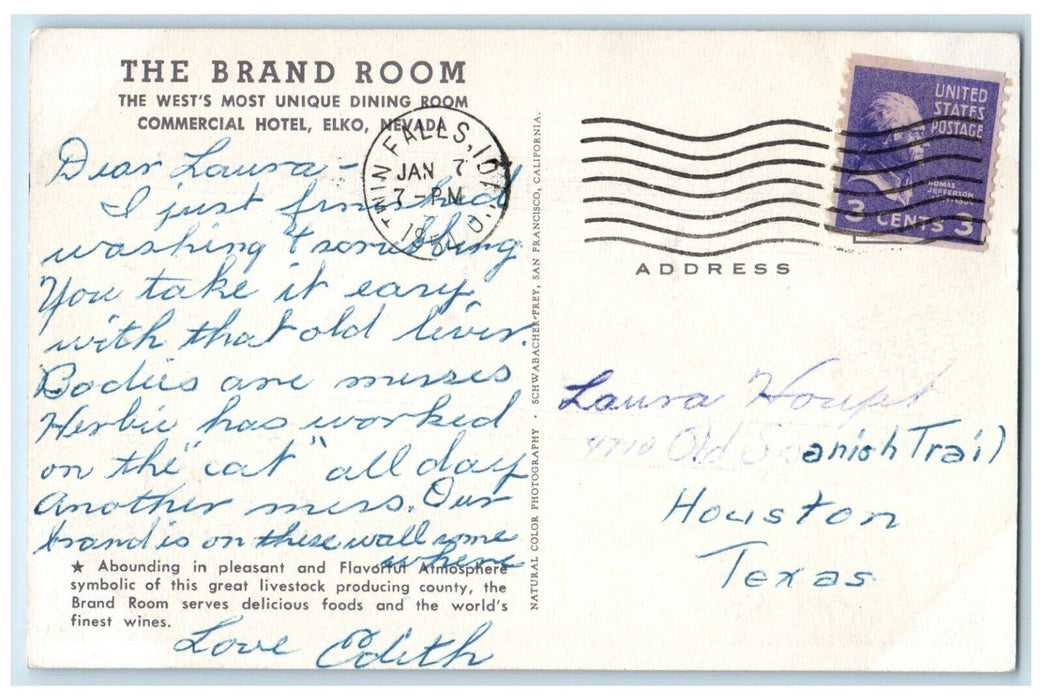 THE BRAND ROOM
THE WEST'S MOST UNIQUE DINING ROOM
COMMERCIAL HOTEL, ELKO, NEVADA
Dear Laura -
I just finished
washing & scrubbing
You take it easy
with that old liver.
Bodies are messes
Herbie has worked
on the "cat" all day
Another mess. Our
brand is on these wall some
where
★ Abounding in pleasant and Flavorful Atmosphere
symbolic of this great livestock producing county, the
Brand Room serves delicious foods and the world's
finest wines.
Love Edith
NATURAL COLOR PHOTOGRAPHY · SCHWABACHER-FREY, SAN FRANCISCO, CALIFORNIA.
TWIN FALLS,
JAN 7
7-PM
UNITED
STATES
POSTAGE
THOMAS
JEFFERSON
3 CENTS 3
ADDRESS
Laura Houpt
4710 Old Spanish Trail
Houston
Texas